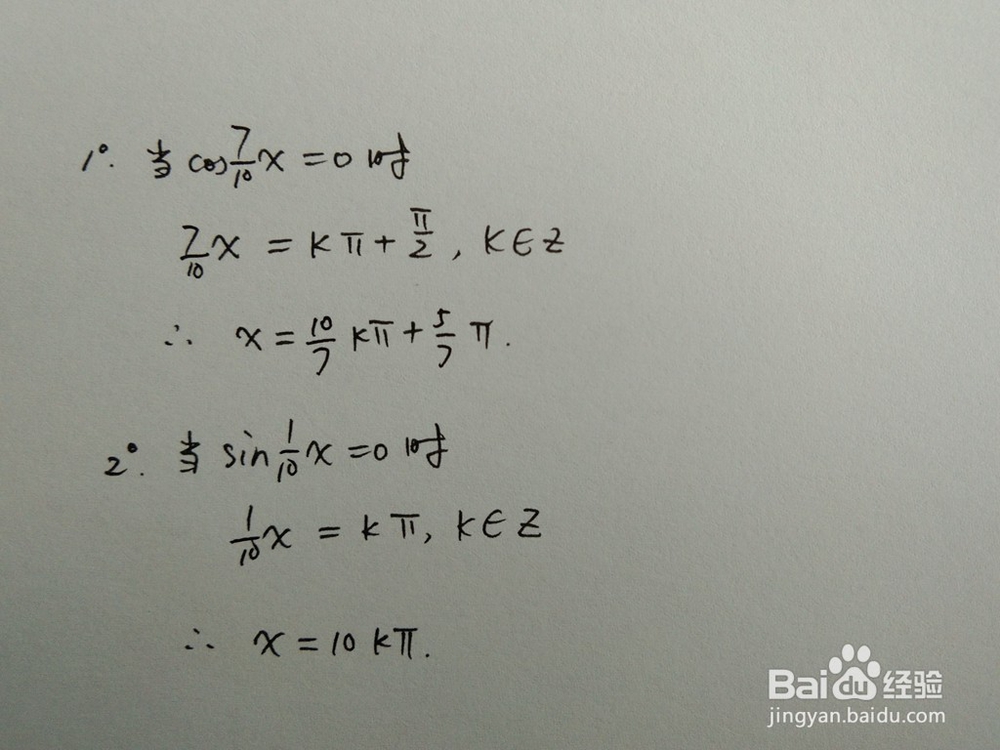 1°. 当 cos 7/10 x = 0 时
7/10 x = kπ + π/2 , k∈Z
∴ x = 10/7 kπ + 5/7 π.
2°. 当 sin 1/10 x = 0 时
1/10 x = kπ, k∈Z
∴ x = 10 kπ.
Baidu 经验
jingyan.baidu.com